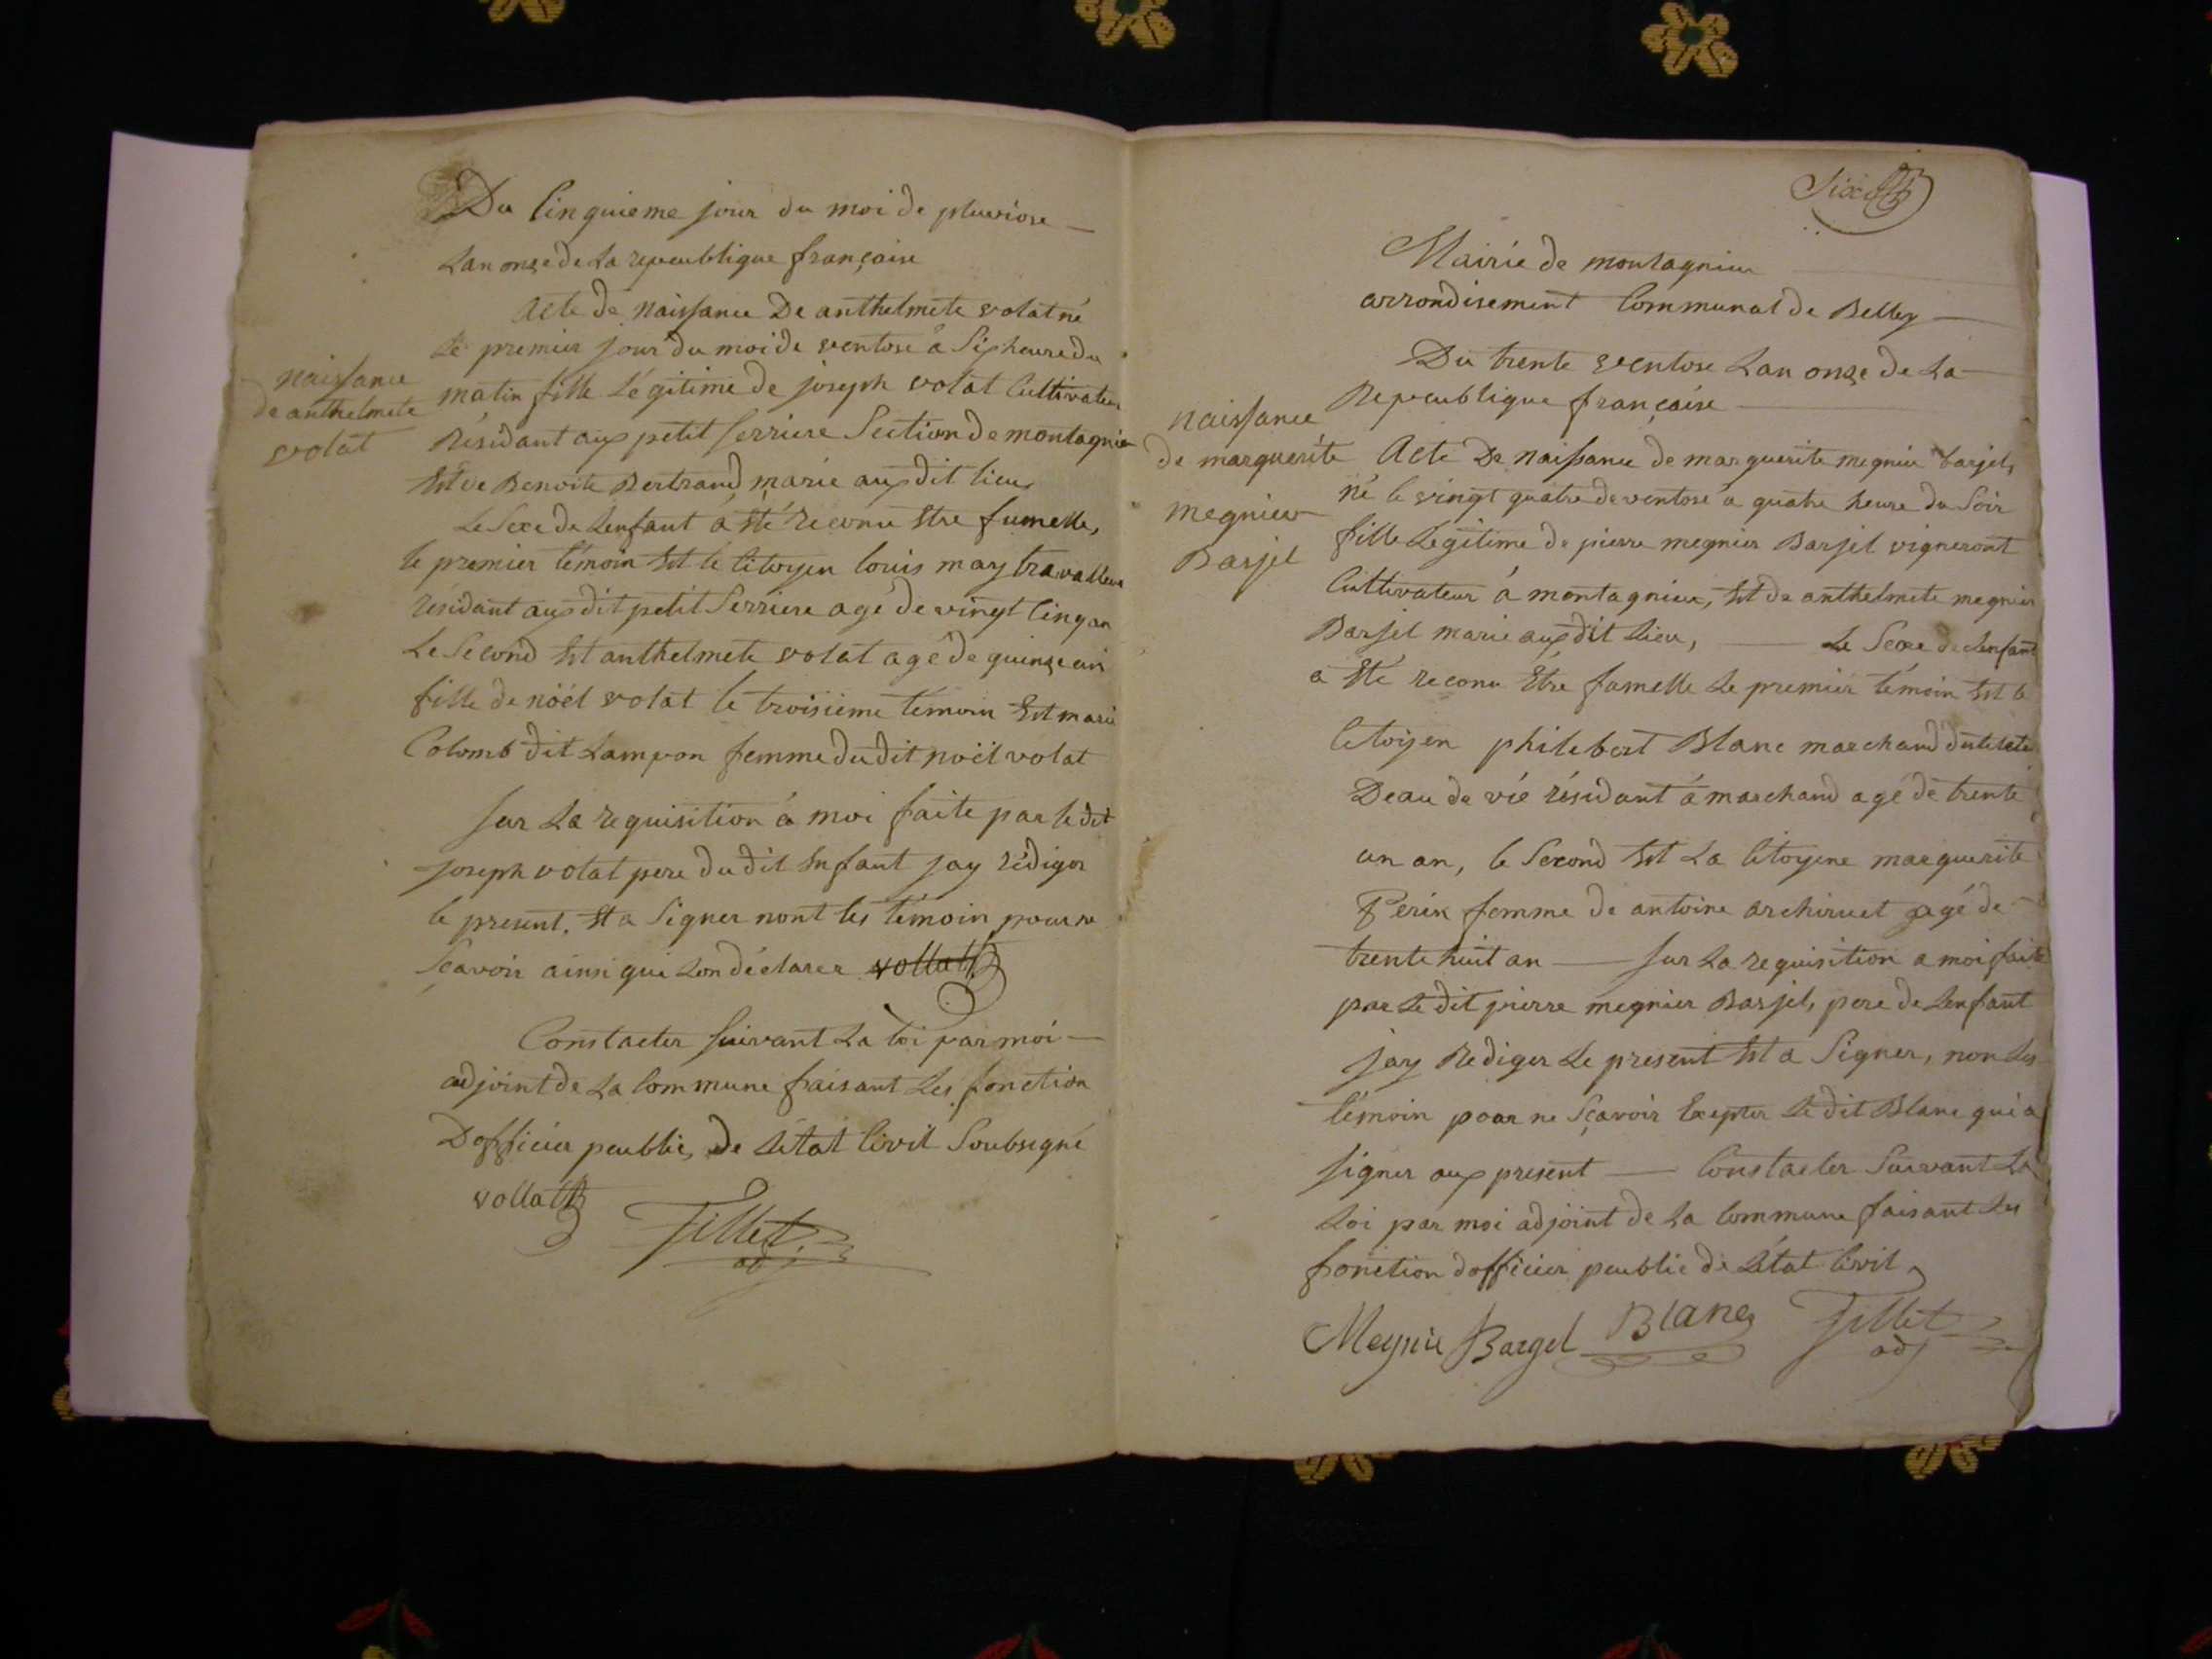 Du Cinquieme jour du moi de pluviose
Lan onze de La repeublique françaisse
Acte de Naissance De anthelmete volat né
Le premier jour du moi de ventose a Six heure du
matin fille Légitime de joseph volat Cultivateur
Résidant aux petit serriere Section de montagnieu
Est de Benoite Bertrand marié aux dit lieu
Le Sexe de Lenfant a Eté reconu Etre fumelle,
le premier témoin Est le Citoyen louis may travalleur
résidant aux dit petit Serriere agé de vingt Cinq an
Le Second Est anthelmete volat agé de quinze an
fille de nöel volat le troisieme témoin Est marie
Colomb dit Lampon femme du dit nöel volat
sur La requisition á moi faite par le dit
joseph volat pere du dit Enfant jay rédiger
le present. Et a Signer nont les témoin pour ne
Sçavoir ainsi qui Lon déclarer vollat
Constacter suivant La loi par moi
adjoint de La Commune faisant Les fonction
Dofficier peublic, De Létat Civil Soubsigné
vollat
Tillet
adj
naissance
de anthelmete
volat
Six
Mairie de montagnieu
arrondisement Communal de Belley
Du trente ventose Lan onze de La
Repeublique française
Acte De naissance de marguerite megnier barjel,
né le vingt quatre de ventose a quatre heure du Soir
fille Legitime de pierre megnier Barjel vigneront
Cultivateur á montagnieu, Est de anthelmete megnier
Barjel marie aux dit lieu, Le Sexe de Lenfant
a Eté reconu Etre fumelle Le premier témoin Est le
Citoyen philebert Blanc marchand
Deau de vié résidant á marchand agé de trente
un an, le Second Est La Citoyene marguerite
Perin femme de antoine agé de
trente huit an sur La requisition a moi faite
par Le dit pierre megnier Barjel, pere de Lenfant
jay Rediger Le present Et a Signer, non Les
témoin pour ne Sçavoir Excepter Le dit Blanc qui a
signer aux present Constacter Suivant La
Loi par moi adjoint de La Commune faisant Les
fonction dofficier peublic de Létat Civil
Meynie Bargel Blanc Tillet
adj
naissance
de marguerite
megnier
Barjel